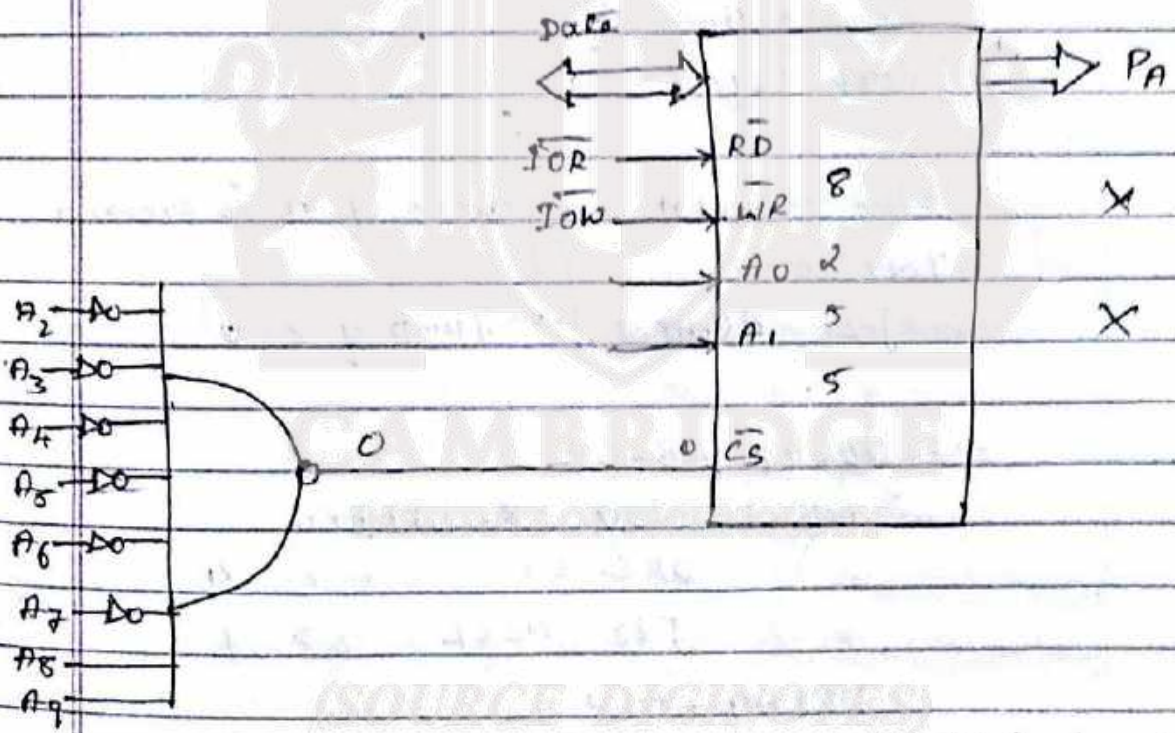 Data
P_A
I̅O̅R̅ R̅D̅
8
I̅O̅W̅ W̅R̅ X
A0 2
A2
5 X
A1
A3
5
A4 0 0 C̅S̅
A5
A6
A7
A8
A9
CAMBRIDGE
(SOURCE DIGINOTES)